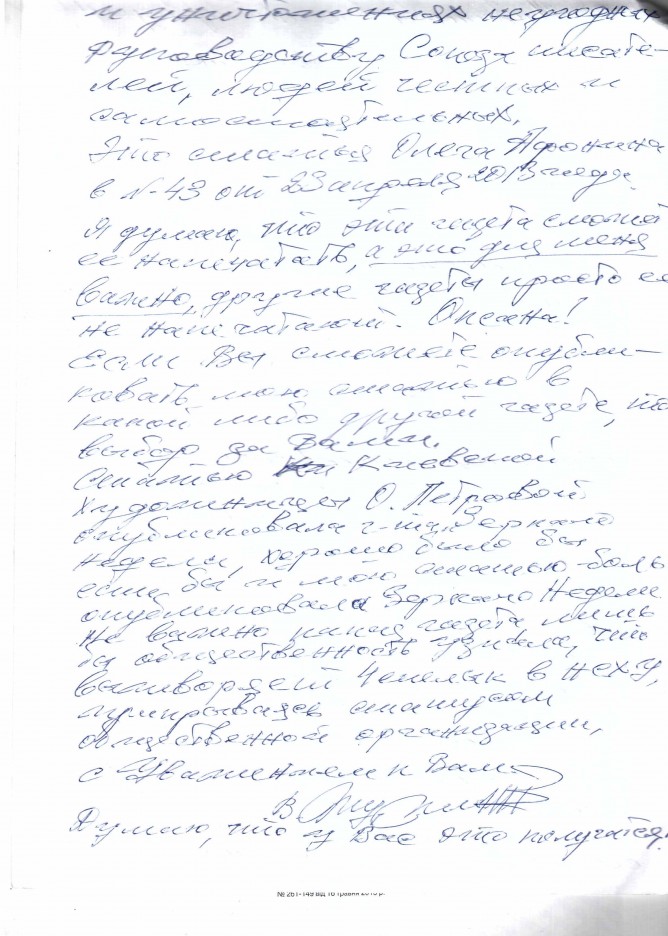 и уничтожениях неугодных
руководству Союза писате-
лей, людей честных и
самостоятельных.
Это статья Олега
в №43 от 23 апреля 2013 года.
Я думаю, что эти газета сможет
её напечатать, а это для меня
важно, другие газеты просто её
не напечатают. Оксана!
Если Вы сможете опубли-
ковать мою статью в
какой либо другой газете, то
выбор за Вами.
Статью Киевской
Художницы О. Петровой
опубликовала г-та Зеркало
Недели, хорошо было бы
если бы и мою статью-боль
опубликовала Зеркало Недели
Не важно какая газета лишь
бы общественность узнала, что
вытворяет Чепелык в НСХУ,
статусом
общественной организации,
с Уважением к Вам
В.
Думаю, что у Вас это получится.
№ 261-149 від 16 травня 2013 р.